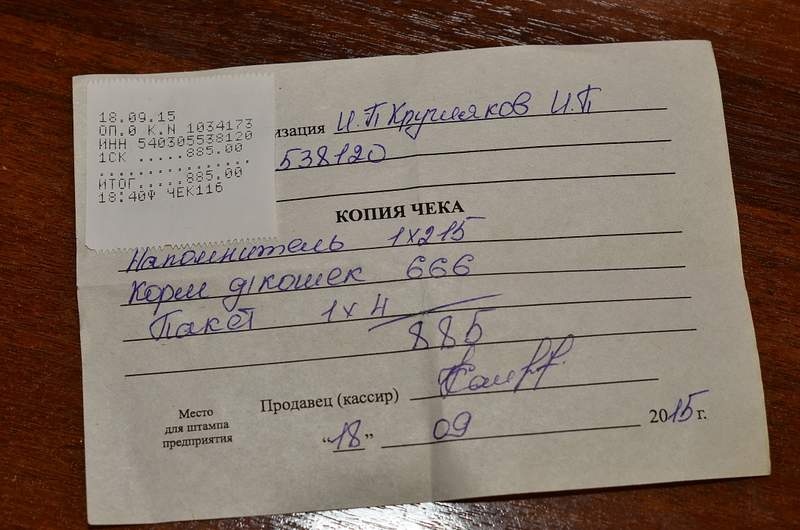 18.09.15
ОП.0 К.N 1034173
ИНН 540305538120
1СК .....885.00
................
ИТОГ.....885.00
18:40Ф ЧЕК116
изация И.П Кругляков И.П
538120
КОПИЯ ЧЕКА
Наполнитель 1х215
Корм д/кошек 666
Пакет 1х4
885
Продавец (кассир)
Место
для штампа
предприятия
"18" 09 2015 г.